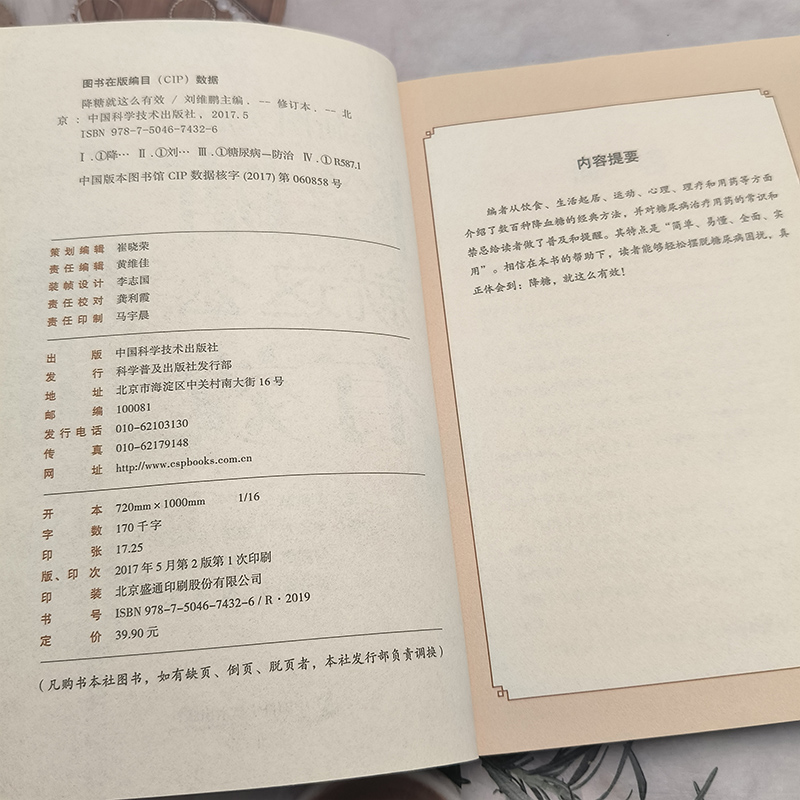 图书在版编目（CIP）数据
降糖就这么有效 / 刘维鹏主编. -- 修订本. -- 北
京：中国科学技术出版社，2017.5
ISBN 978-7-5046-7432-6
Ⅰ.①降… Ⅱ.①刘… Ⅲ.①糖尿病—防治 Ⅳ.①R587.1
中国版本图书馆 CIP 数据核字 (2017) 第 060858 号
策划编辑 崔晓荣
责任编辑 黄维佳
装帧设计 李志国
责任校对 龚利霞
责任印制 马宇晨
出版 中国科学技术出版社
发行 科学普及出版社发行部
地址 北京市海淀区中关村南大街 16 号
邮编 100081
发行电话 010-62103130
传真 010-62179148
网址 http://www.cspbooks.com.cn
开本 720mm×1000mm 1/16
字数 170 千字
印张 17.25
版、印次 2017 年 5 月第 2 版第 1 次印刷
印装 北京盛通印刷股份有限公司
书号 ISBN 978-7-5046-7432-6 / R·2019
定价 39.90 元
（凡购书本社图书，如有缺页、倒页、脱页者，本社发行部负责调换）
内容提要
编者从饮食、生活起居、运动、心理、理疗和用药等方面
介绍了数百种降血糖的经典方法，并对糖尿病治疗用药的常识和
禁忌给读者做了普及和提醒。其特点是“简单、易懂、全面、实
用”。相信在本书的帮助下，读者能够轻松摆脱糖尿病困扰，真
正体会到：降糖，就这么有效！